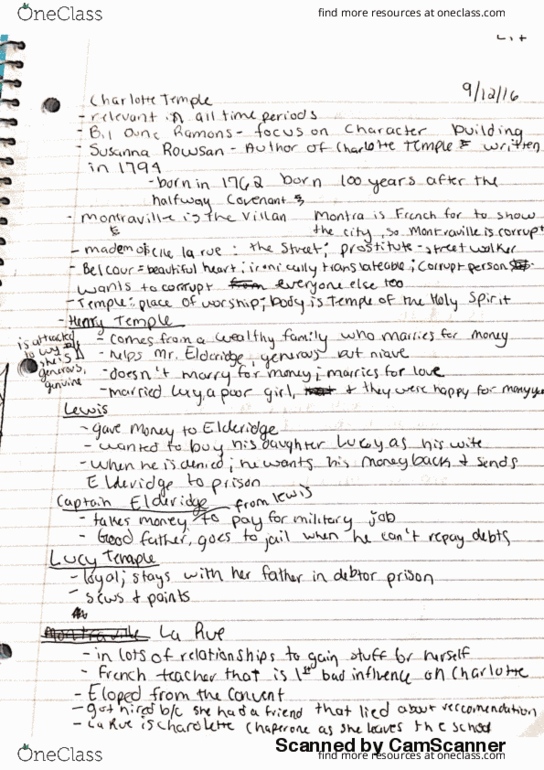 OneClass
find more resources at oneclass.com
Lit
9/12/16
Charlotte Temple
- relevant in all time periods
- focus on Character building
- Susanna Rowsan - Author of Charlotte Temple written
in 1794
- born in 1762 born 100 years after the
halfway Covenant
- montraville is the villan Montra is French for to show
the city, so Montraville is corrupt
- mademoicile la rue: the street; prostitute - street walker
- Belcour = beautiful heart; ironically translateable; corrupt person
wants to corrupt everyone else too
- Temple: place of worship; body is temple of the Holy Spirit
- Henry Temple
- comes from a wealthy family who marries for money
is attracted
to Lucy
she is
generous,
genuine
- helps Mr. Elderidge, generous but niave
- doesn't marry for money; marries for love
- married Lucy, a poor girl, + they were happy for many
Lewis
- gave money to Elderidge
- wanted to buy his daughter Lucy as his wife
- when he is denied; he wants his money back + sends
Elderidge to prison
Captain Elderidge
from lewis
- takes money to pay for military job
- Good father, goes to jail when he can't repay debts
Lucy Temple
- loyal; stays with her father in debtor prison
- sews + paints
Montraville La Rue
- in lots of relationships to gain stuff for herself
- French teacher that is 1st bad influence on Charlotte
- Eloped from the convent
- got hired b/c she had a friend that lied about reccomendation
- La Rue is charolette chaperone as she leaves the school
Scanned by CamScanner
OneClass
find more resources at oneclass.com